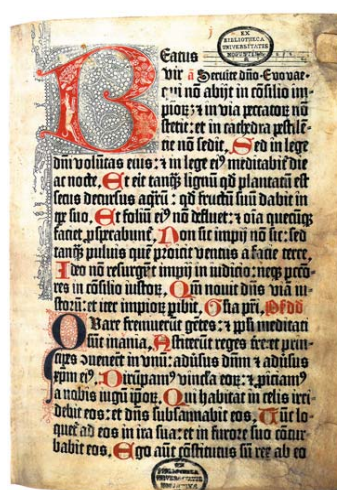 EX
BIBLIOTHECA
UNIVERSITATIS
Beatus
vir a Seruite dño. Euouae.
qui nõ abijt in cõsilio im-
pioꝝ ⁊ in via pctãtoꝝ nõ
stetit: et in cathedra pestilẽ-
tie nõ sedit. Sed in lege
dñi volũtas eius: ⁊ in lege eiꝰ meditabiť die
ac nocte. Et erit tanqʒ lignũ qđ plantatũ est
secus decursus aqꝝ: qđ fructũ suũ dabit in
tꝑe suo. Et foliũ eiꝰ nõ defluet: ⁊ oĩa quecũqʒ
faciet ꝓsperabunť. Non sic impij nõ sic: sed
tanqʒ puluis quẽ proicit ventus a facie terre.
Ideo nõ resurgẽt impij in iudicio: neqʒ pctõ-
res in cõsilio iustoꝝ. Qm̃ nouit dñs viã iu-
stoꝝ: et iter impioꝝ ꝑibit. Gl'ia pr̃i.
Quare fremuerũt gẽtes: ⁊ ppl'i meditati
sunt inania. Astiterũt reges tr̃e et prin-
cipes ꝯuenerũt in vnũ: aduersus dñm ⁊ aduersus
xp̃m eiꝰ. Dirũpamꝰ vincl'a eoꝝ: ⁊ ꝓiciamꝰ
a nobis iugũ ipoꝝ. Qui habitat in celis irri-
debit eos: et dñs subsannabit eos. Tũc lo-
queť ad eos in ira sua: et in furore suo cõtur-
babit eos. Ego aũt cõstitutus sũ rex ab eo
EX
BIBLIOTHECA
UNIVERSITATIS